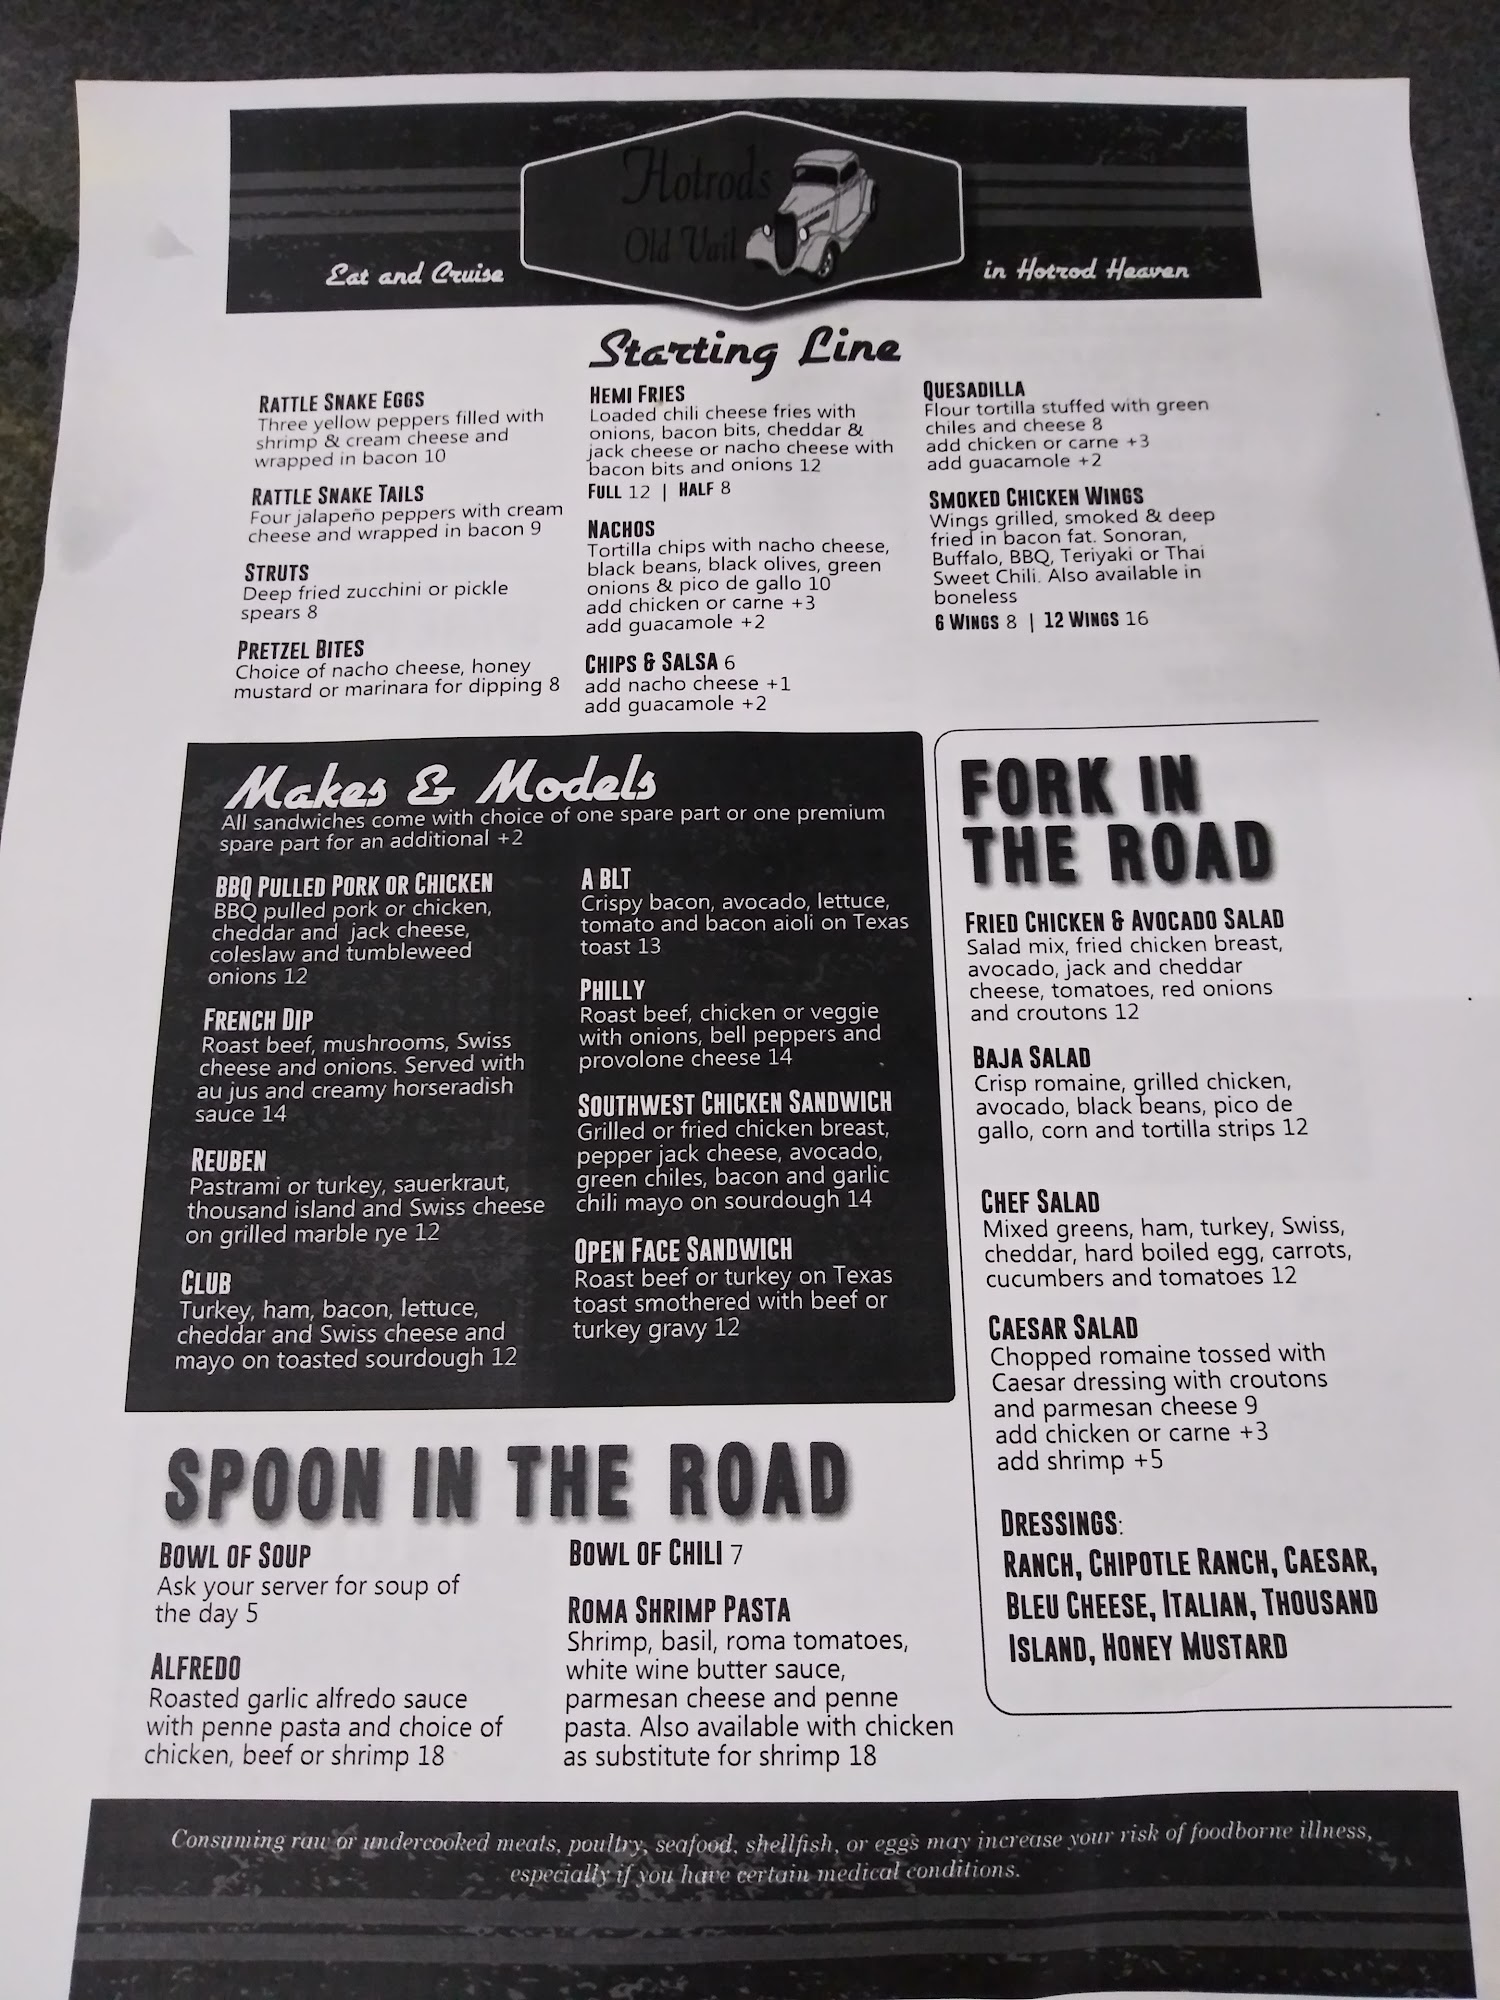 Hotrods
Old Vail
Eat and Cruise
in Hotrod Heaven
Starting Line
RATTLE SNAKE EGGS
Three yellow peppers filled with
shrimp & cream cheese and
wrapped in bacon 10
RATTLE SNAKE TAILS
Four jalapeño peppers with cream
cheese and wrapped in bacon 9
STRUTS
Deep fried zucchini or pickle
spears 8
PRETZEL BITES
Choice of nacho cheese, honey
mustard or marinara for dipping 8
HEMI FRIES
Loaded chili cheese fries with
onions, bacon bits, cheddar &
jack cheese or nacho cheese with
bacon bits and onions 12
FULL 12 | HALF 8
NACHOS
Tortilla chips with nacho cheese,
black beans, black olives, green
onions & pico de gallo 10
add chicken or carne +3
add guacamole +2
CHIPS & SALSA 6
add nacho cheese +1
add guacamole +2
QUESADILLA
Flour tortilla stuffed with green
chiles and cheese 8
add chicken or carne +3
add guacamole +2
SMOKED CHICKEN WINGS
Wings grilled, smoked & deep
fried in bacon fat. Sonoran,
Buffalo, BBQ, Teriyaki or Thai
Sweet Chili. Also available in
boneless
6 WINGS 8 | 12 WINGS 16
Makes & Models
All sandwiches come with choice of one spare part or one premium
spare part for an additional +2
BBQ PULLED PORK OR CHICKEN
BBQ pulled pork or chicken,
cheddar and jack cheese,
coleslaw and tumbleweed
onions 12
FRENCH DIP
Roast beef, mushrooms, Swiss
cheese and onions. Served with
au jus and creamy horseradish
sauce 14
REUBEN
Pastrami or turkey, sauerkraut,
thousand island and Swiss cheese
on grilled marble rye 12
CLUB
Turkey, ham, bacon, lettuce,
cheddar and Swiss cheese and
mayo on toasted sourdough 12
A BLT
Crispy bacon, avocado, lettuce,
tomato and bacon aioli on Texas
toast 13
PHILLY
Roast beef, chicken or veggie
with onions, bell peppers and
provolone cheese 14
SOUTHWEST CHICKEN SANDWICH
Grilled or fried chicken breast,
pepper jack cheese, avocado,
green chiles, bacon and garlic
chili mayo on sourdough 14
OPEN FACE SANDWICH
Roast beef or turkey on Texas
toast smothered with beef or
turkey gravy 12
FORK IN
THE ROAD
FRIED CHICKEN & AVOCADO SALAD
Salad mix, fried chicken breast,
avocado, jack and cheddar
cheese, tomatoes, red onions
and croutons 12
BAJA SALAD
Crisp romaine, grilled chicken,
avocado, black beans, pico de
gallo, corn and tortilla strips 12
CHEF SALAD
Mixed greens, ham, turkey, Swiss,
cheddar, hard boiled egg, carrots,
cucumbers and tomatoes 12
CAESAR SALAD
Chopped romaine tossed with
Caesar dressing with croutons
and parmesan cheese 9
add chicken or carne +3
add shrimp +5
DRESSINGS:
RANCH, CHIPOTLE RANCH, CAESAR,
BLEU CHEESE, ITALIAN, THOUSAND
ISLAND, HONEY MUSTARD
SPOON IN THE ROAD
BOWL OF SOUP
Ask your server for soup of
the day 5
ALFREDO
Roasted garlic alfredo sauce
with penne pasta and choice of
chicken, beef or shrimp 18
BOWL OF CHILI 7
ROMA SHRIMP PASTA
Shrimp, basil, roma tomatoes,
white wine butter sauce,
parmesan cheese and penne
pasta. Also available with chicken
as substitute for shrimp 18
Consuming raw or undercooked meats, poultry, seafood, shellfish, or eggs may increase your risk of foodborne illness,
especially if you have certain medical conditions.